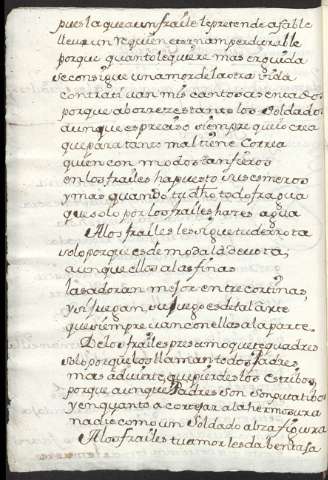 pues la que a un fraile le pretende afable
lleva un requien eternam perdurable
porque quanto le quiere mas erguida
se consigue un amor de la otra vida
contrati van mis cantos asentados
porque aborrezes tanto los Soldados
aunque es preciso siempre que lo crea
que para tanto mal tiene Correa
quien con modos tan fieros
en los frailes ha puesto sus esmeros
y mas quando tu dho todo fragua
que solo por los frailes hazes agua
A los frailes les sigue tu derrota
solo porque es de moda la devota,
aunque ellos a las finas
las adoran mejor entre cortinas,
y si juegan, su juego es de tal arte
que siempre van con ellas a la parte.
De los frailes presumo que te quadres
solo porque los llaman todos Padres
mas advierte, que pierdes los estribos,
porque aunque Padres son Putativos
y en quanto a cortejar a la hermosura
nadie como un Soldado alza figura
A los frailes tu amor les da